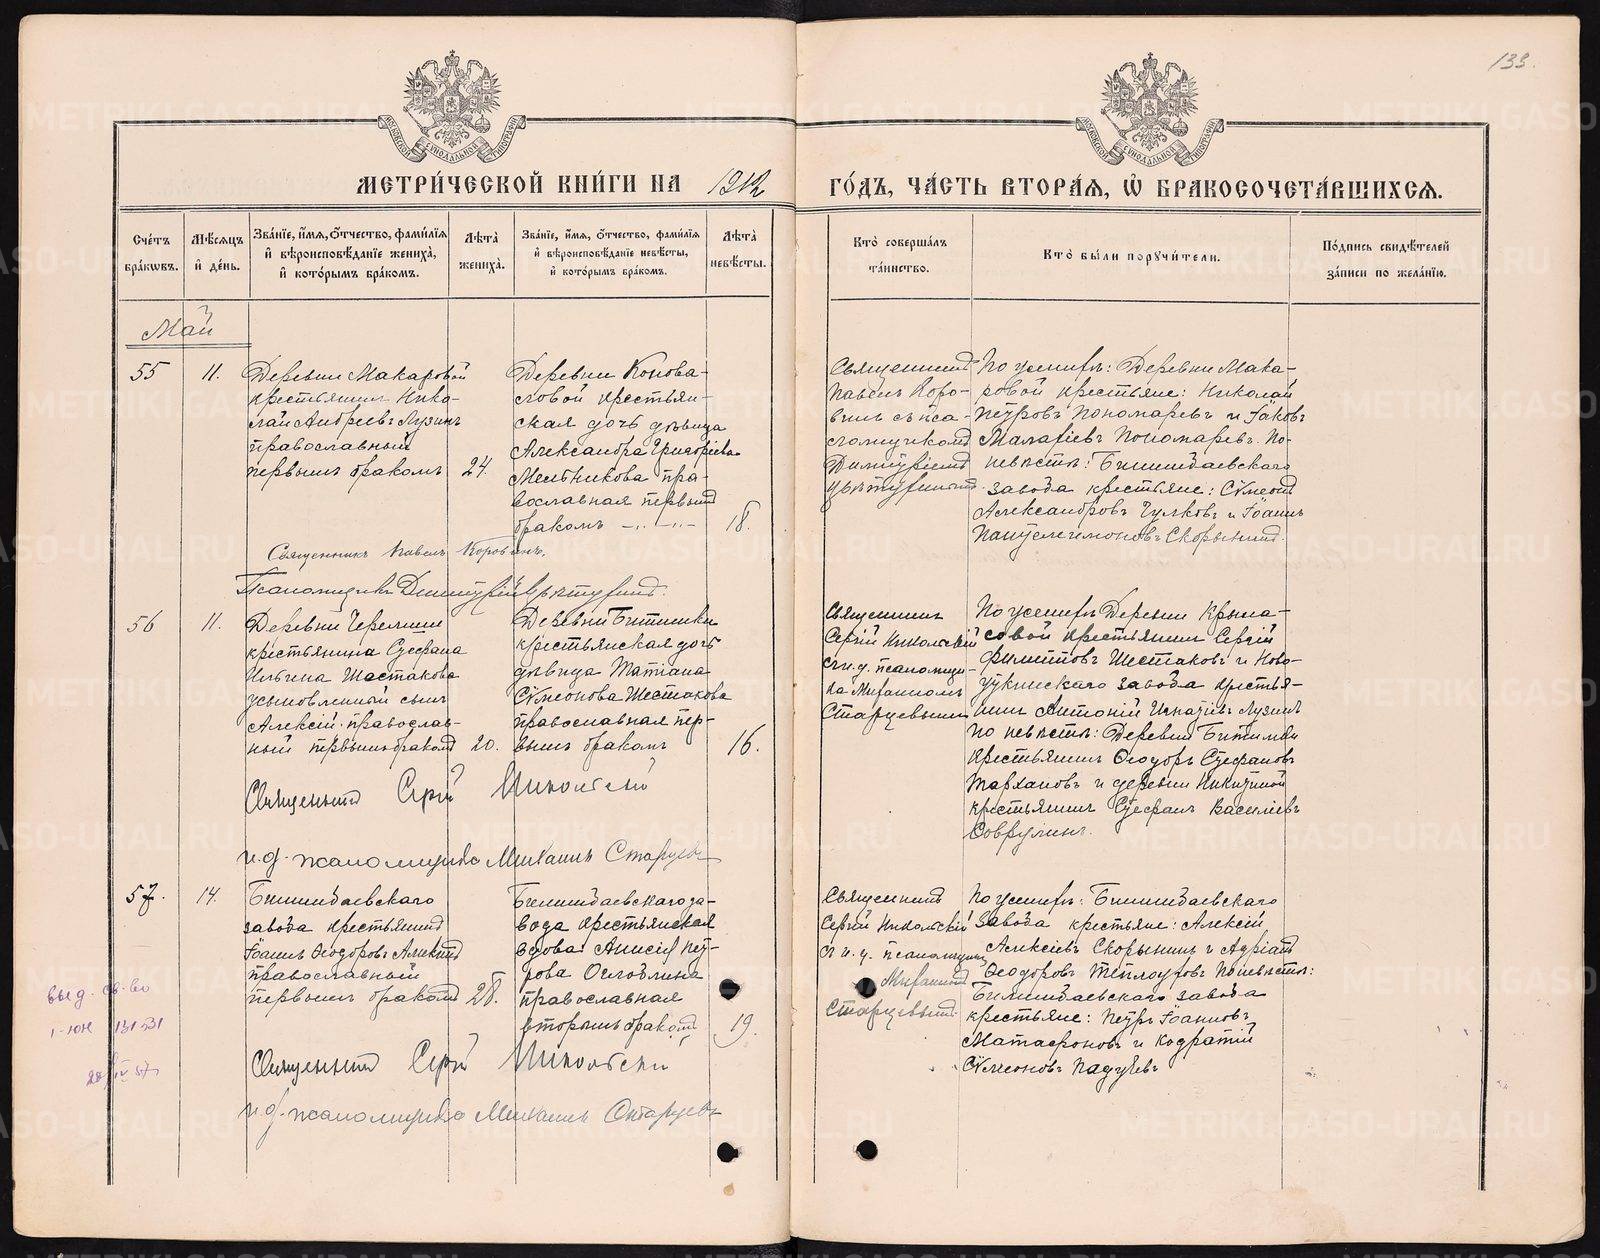 133.
МЕТРИ́ЧЕСКОЙ КНИ́ГИ НА 1912 ГО́ДЪ, ЧА́СТЬ ВТОРА́Ѧ, Ѡ҆ БРАКОСОЧЕТА́ВШИХСѦ.
Сче́тъ бра́кѡвъ.
Мѣ́сѧцъ и҆ де́нь.
Зва́нїе, и҆́мѧ, ѻ҆́тчество, фамѝлїѧ и҆ вѣроисповѣ́данїе жениха̀, и҆ кото́рымъ бра́комъ.
Лѣ́та жениха̀.
Зва́нїе, и҆́мѧ, ѻ҆́тчество, фамѝлїѧ и҆ вѣроисповѣ́данїе невѣ́сты, и҆ кото́рымъ бра́комъ.
Лѣ́та невѣ́сты.
Кто̀ соверша́лъ та́инство.
Кто̀ бы́ли порꙋчи́тели.
По́дпись свидѣ́телей за́писи по жела́нїю.
Май
55
11.
Деревни Макаровой
крестьянинъ Нико-
лай Андреевъ Лузинъ
православный
первымъ бракомъ
24.
Деревни Конова-
ловой крестьян-
ская дочь дѣвица
Александра Григорiева
Мельникова пра-
вославная первымъ
бракомъ
18.
Священникъ
Павелъ Коро-
винъ съ пса-
ломщикомъ
Димитрiемъ
По женихѣ: Деревни Мака-
ровой крестьяне: Николай
Петровъ Пономаревъ и Iаковъ
Малафiевъ Пономаревъ. По
невѣстѣ: Билимбаевскаго
завода крестьяне: Сѵмеонъ
Александровъ Гулковъ и Iоаннъ
Пантелеимоновъ Скорынинъ.
Священникъ Павелъ Коровинъ.
Псаломщикъ Димитрiй
56
11.
Деревни Черемши
крестьянина Стефана
Ильина Шестакова
усыновленный сынъ
Алексiй. православ-
ный первымъ бракомъ
20.
Деревни Битимки
крестьянская дочь
дѣвица Татiана
Сѵмеонова Шестакова
православная пер-
вымъ бракомъ
16.
Священникъ
Сергiй Никольскiй
съ и. д. псаломщи-
ка Михаиломъ
Старцевымъ
По женихѣ Деревни Крыла-
совой крестьянинъ Сергiй
Филипповъ Шестаковъ и Ново-
уткинскаго завода крестья-
нинъ Антонiй Игнатiевъ Лузинъ
По невѣстѣ: Деревни Битимки
крестьянинъ Ѳеодоръ Стефановъ
Тархановъ и деревни Никитиной
крестьянинъ Стефанъ Василiевъ
Совр улинъ.
Священникъ Сергiй Никольскiй
и. д. псаломщика Михаилъ Старцевъ
57.
14.
Билимбаевскаго
завода крестьянинъ
Iоаннъ Ѳеодоровъ Аликинъ
православный
первымъ бракомъ
28.
Билимбаевскаго за-
вода крестьянская
вдова Анисiя Пет-
рова Оглоблина
православная
вторымъ бракомъ
19.
Священникъ
Сергiй Никольскiй
съ и. д. псаломщика
Михаиломъ
Старцевымъ
По женихѣ: Билимбаевскаго
завода крестьяне: Алексiй
Алексiевъ Скорынинъ и Адрiанъ
Ѳеодоровъ Теплоуховъ По невѣстѣ:
Билимбаевскаго завода
крестьяне: Петръ Iоанновъ
Матафоновъ и Кодратiй
Сѵмеоновъ Падучевъ
выд. св-во
Священникъ Сергiй Никольскiй
и. д. псаломщика Михаилъ Старцевъ